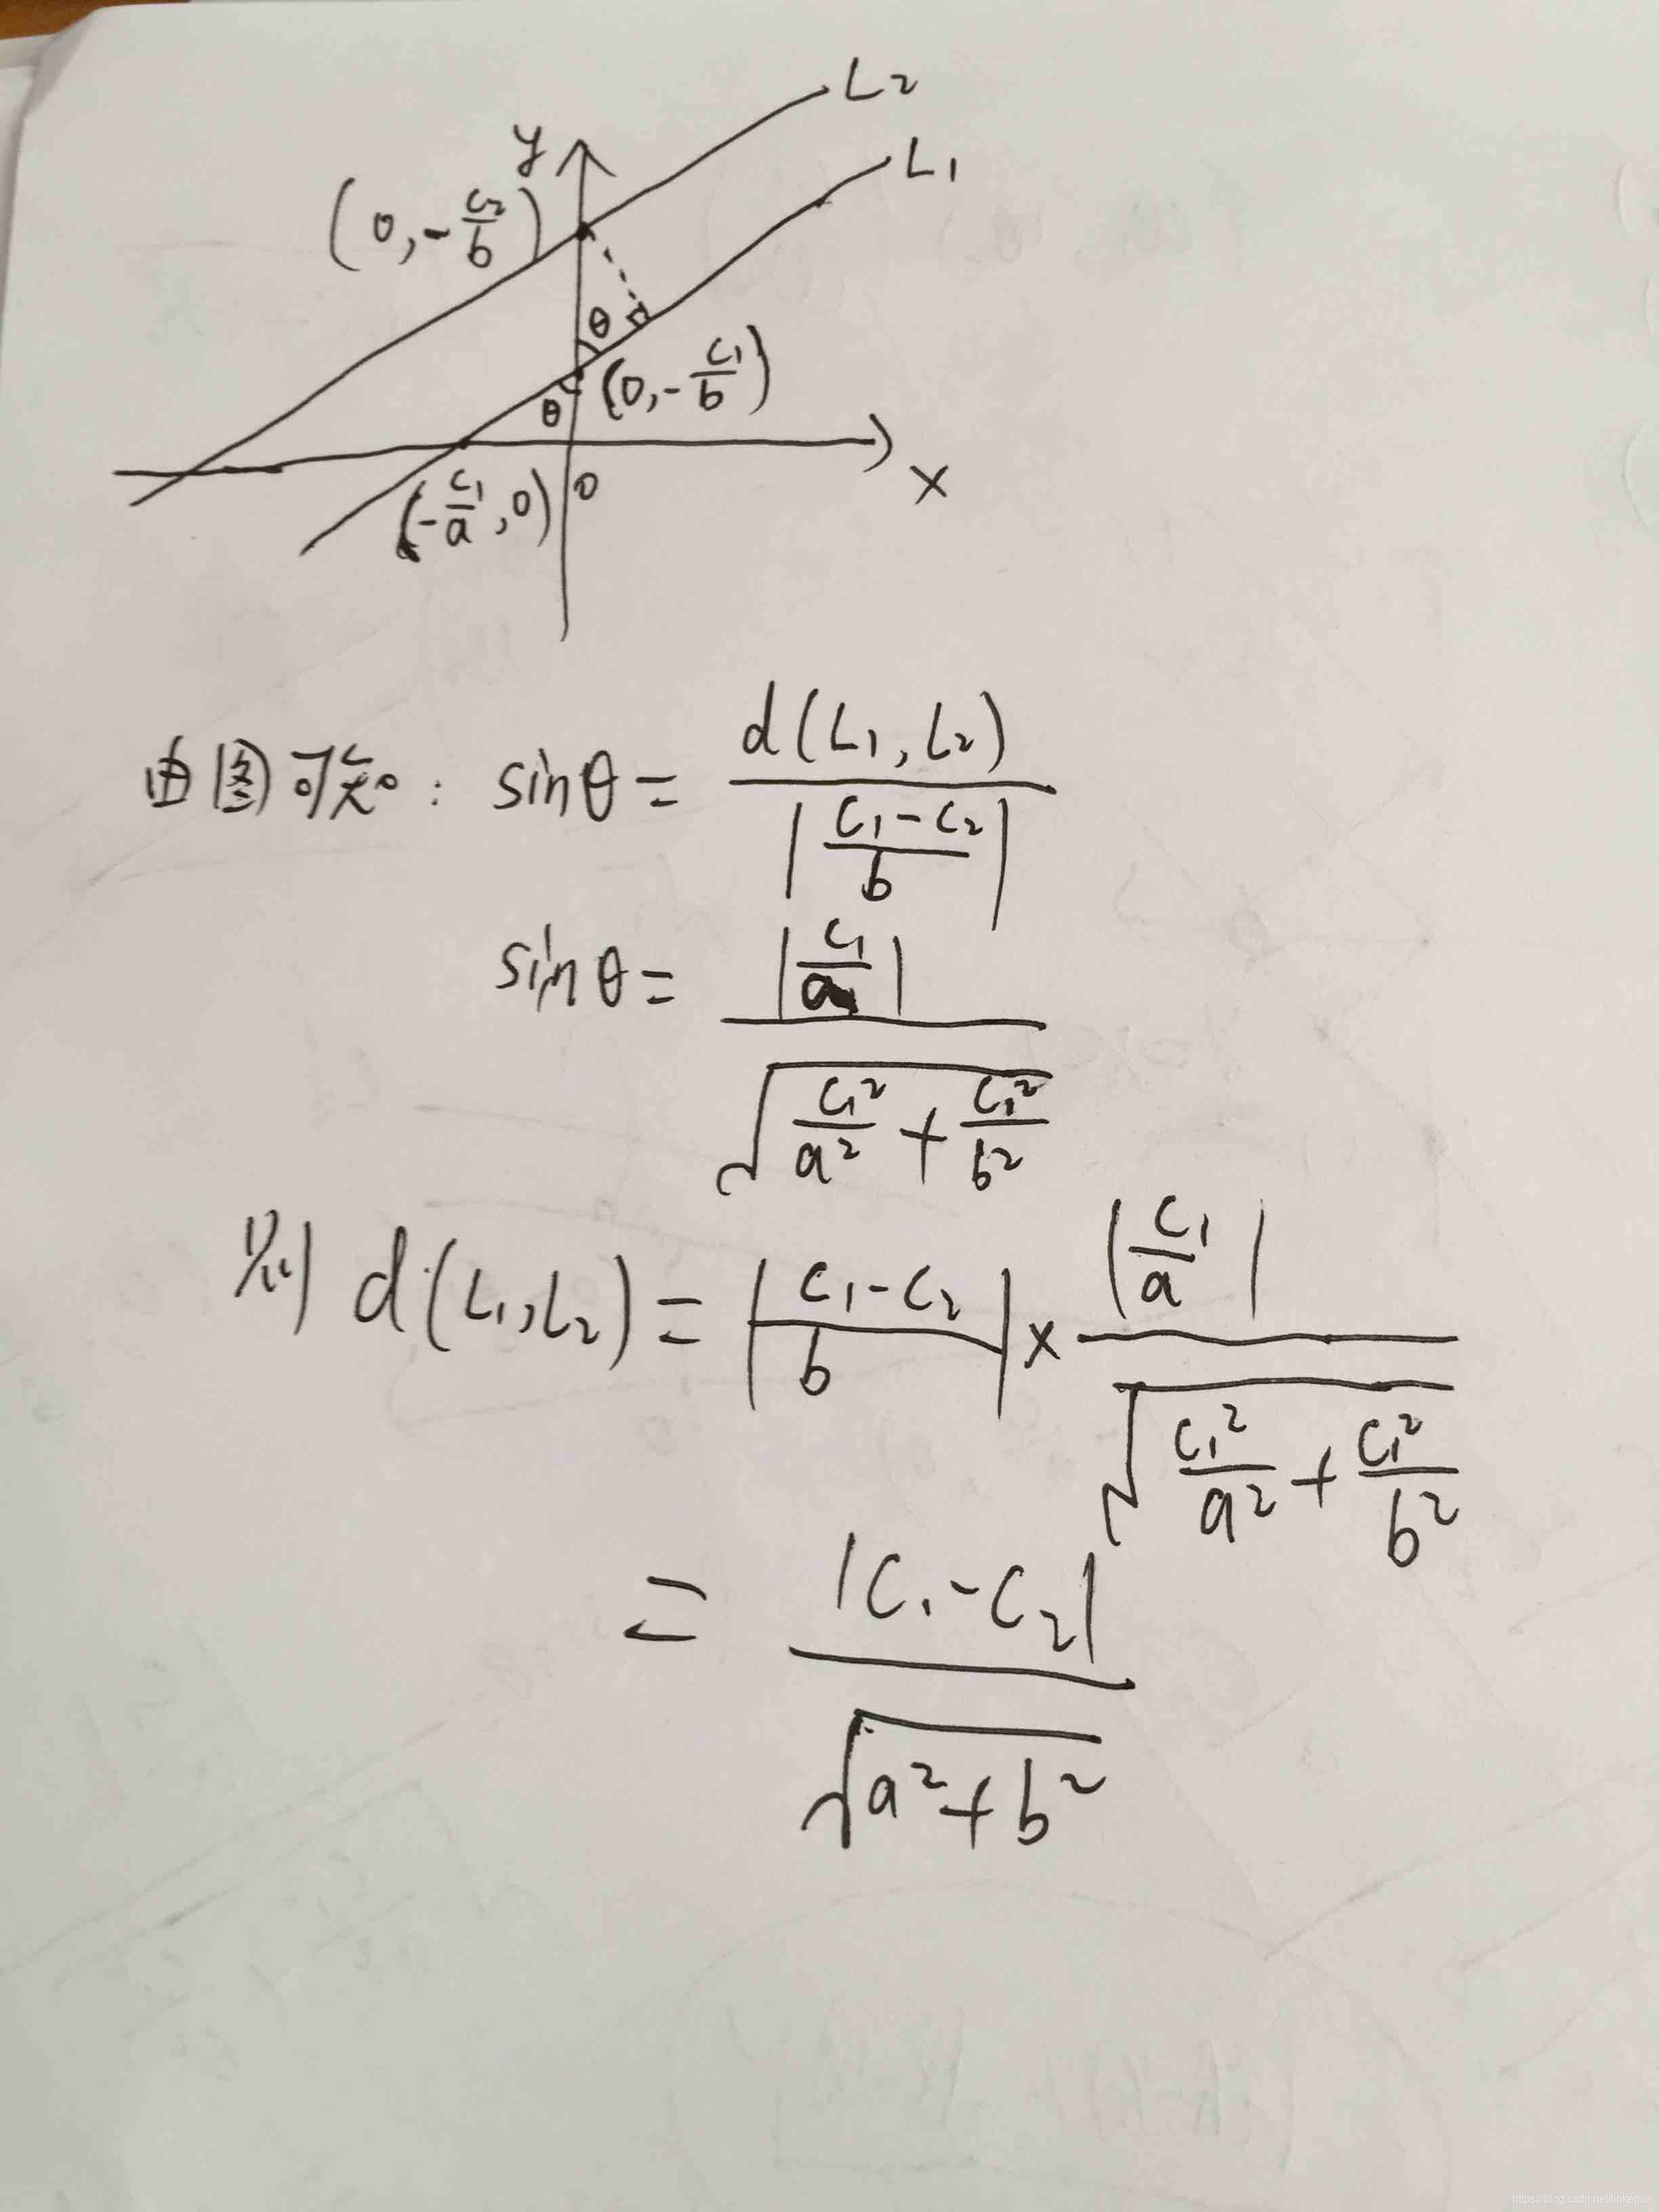 L2
y
L1
(0, -c₂/b)
θ
(0, -c₁/b)
θ
x
(-c₁/a, 0)
0
由图可知: sinθ = d(L₁, L₂) / |(c₁-c₂)/b|
sinθ = |c₁/a| / √(c₁²/a² + c₁²/b²)
则 d(L₁, L₂) = |(c₁-c₂)/b| × |c₁/a| / √(c₁²/a² + c₁²/b²)
= |c₁-c₂| / √(a²+b²)
https://blog.csdn.net/linkequa